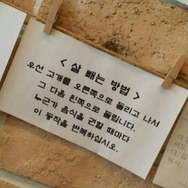 < 살 빼는 방법 >
우선 고개를 오른쪽으로 돌리고 나서
그 다음 왼쪽으로 돌립니다.
누군가 음식을 건넬 때마다
이 동작을 반복하십시오.